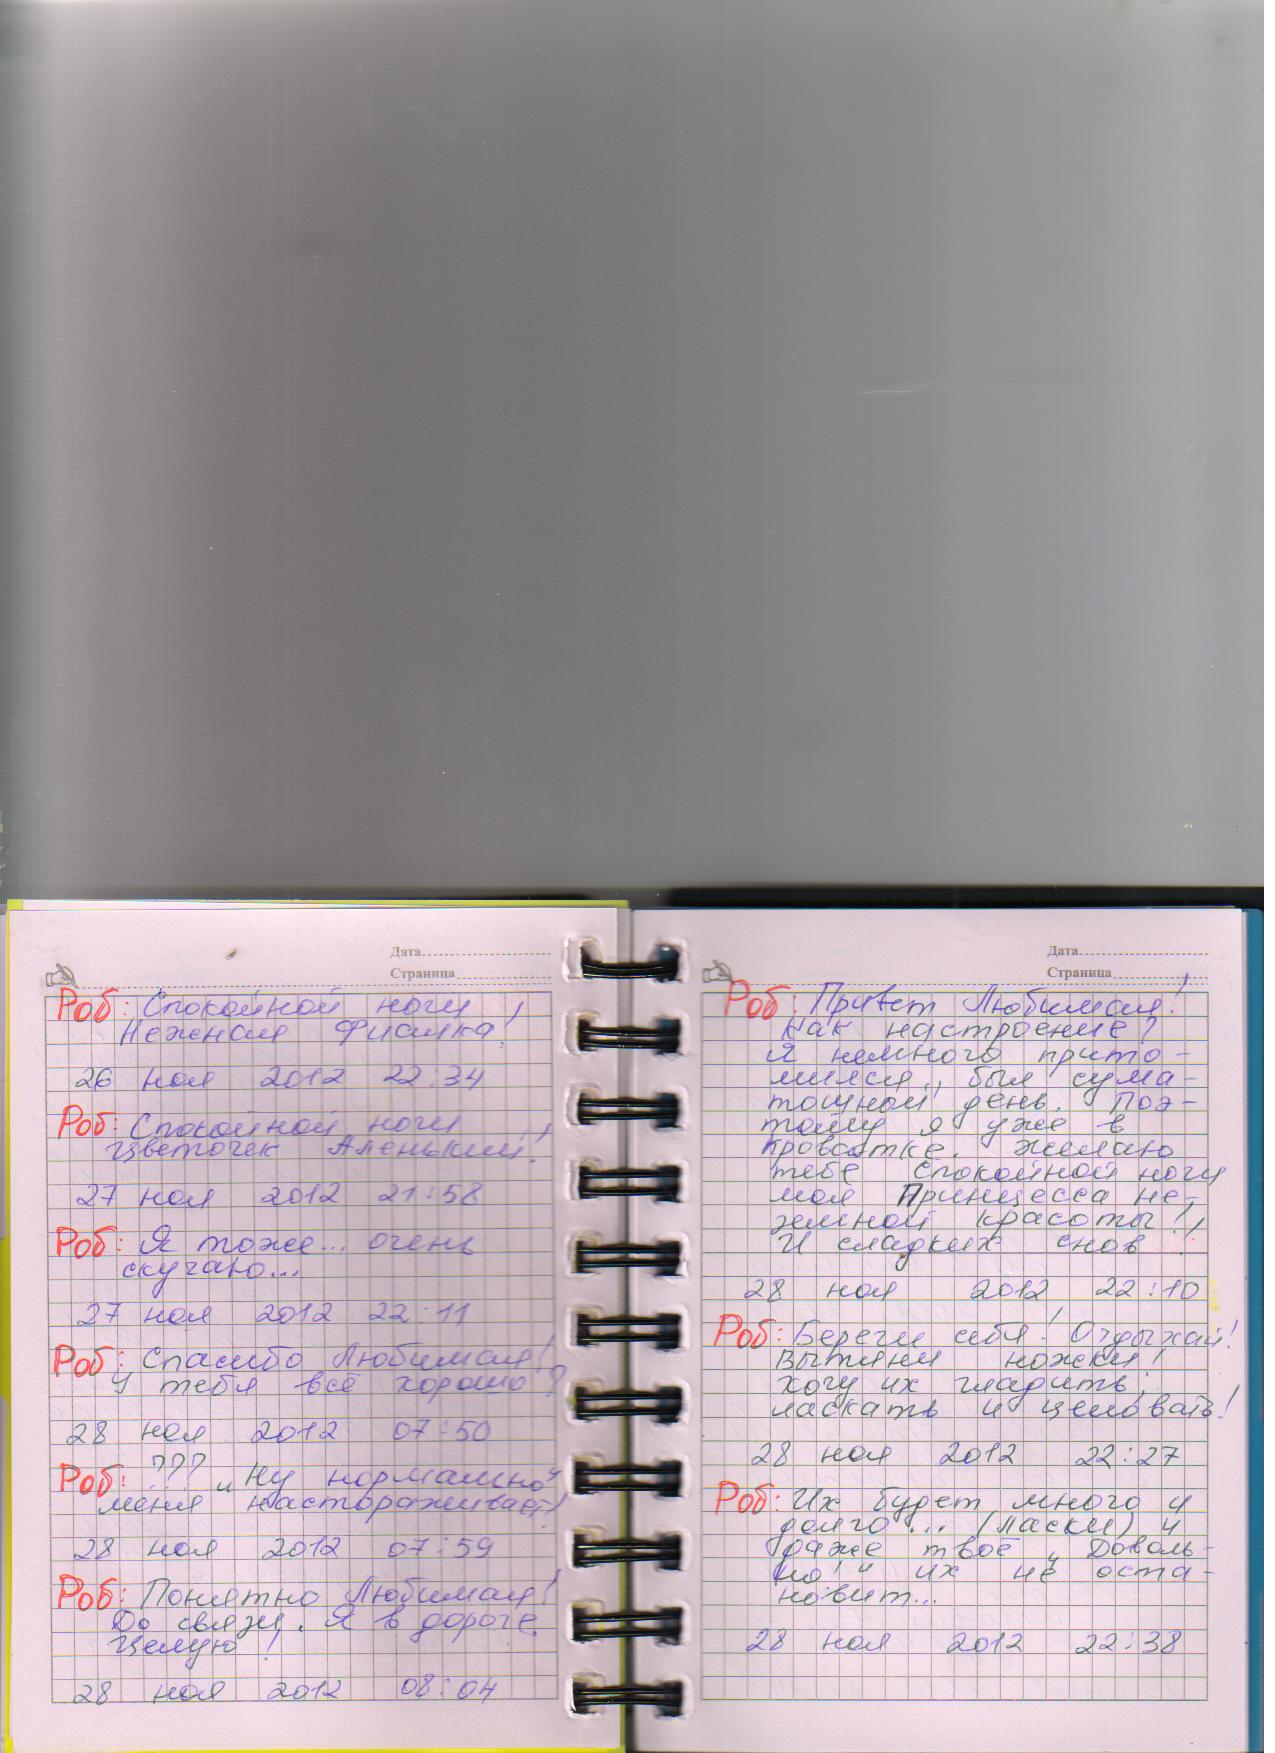 Дата
Страница
Роб: Спокойной ночи
Нежная Фиалка!
26 ноя 2012 22:34
Роб: Спокойной ночи
Цветочек Аленький!
27 ноя 2012 21:58
Роб: Я тоже... очень
скучаю...
27 ноя 2012 22:11
Роб: Спасибо Любимая!
У тебя всё хорошо?
28 ноя 2012 07:50
Роб: ??? "Ну нормально"
меня настораживает!
28 ноя 2012 07:59
Роб: Понятно Любимая!
До связи. Я в дороге.
Целую!
28 ноя 2012 08:04
Дата
Страница
Роб: Привет Любимая!
Как настроение?
Я немного прито-
мился, был сума-
тошный день. Поэ-
тому я уже в
кроватке. Желаю
тебе спокойной ночи
моя Принцесса не-
земной красоты!
И сладких снов!
28 ноя 2012 22:10
Роб: Береги себя! Отдыхай!
Вытяни ножки!
Хочу их гладить,
ласкать и целовать!
28 ноя 2012 22:27
Роб: Их будет много и
долго... (ласки) и
даже твоё "Доволь-
но!" их не оста-
новит...
28 ноя 2012 22:38